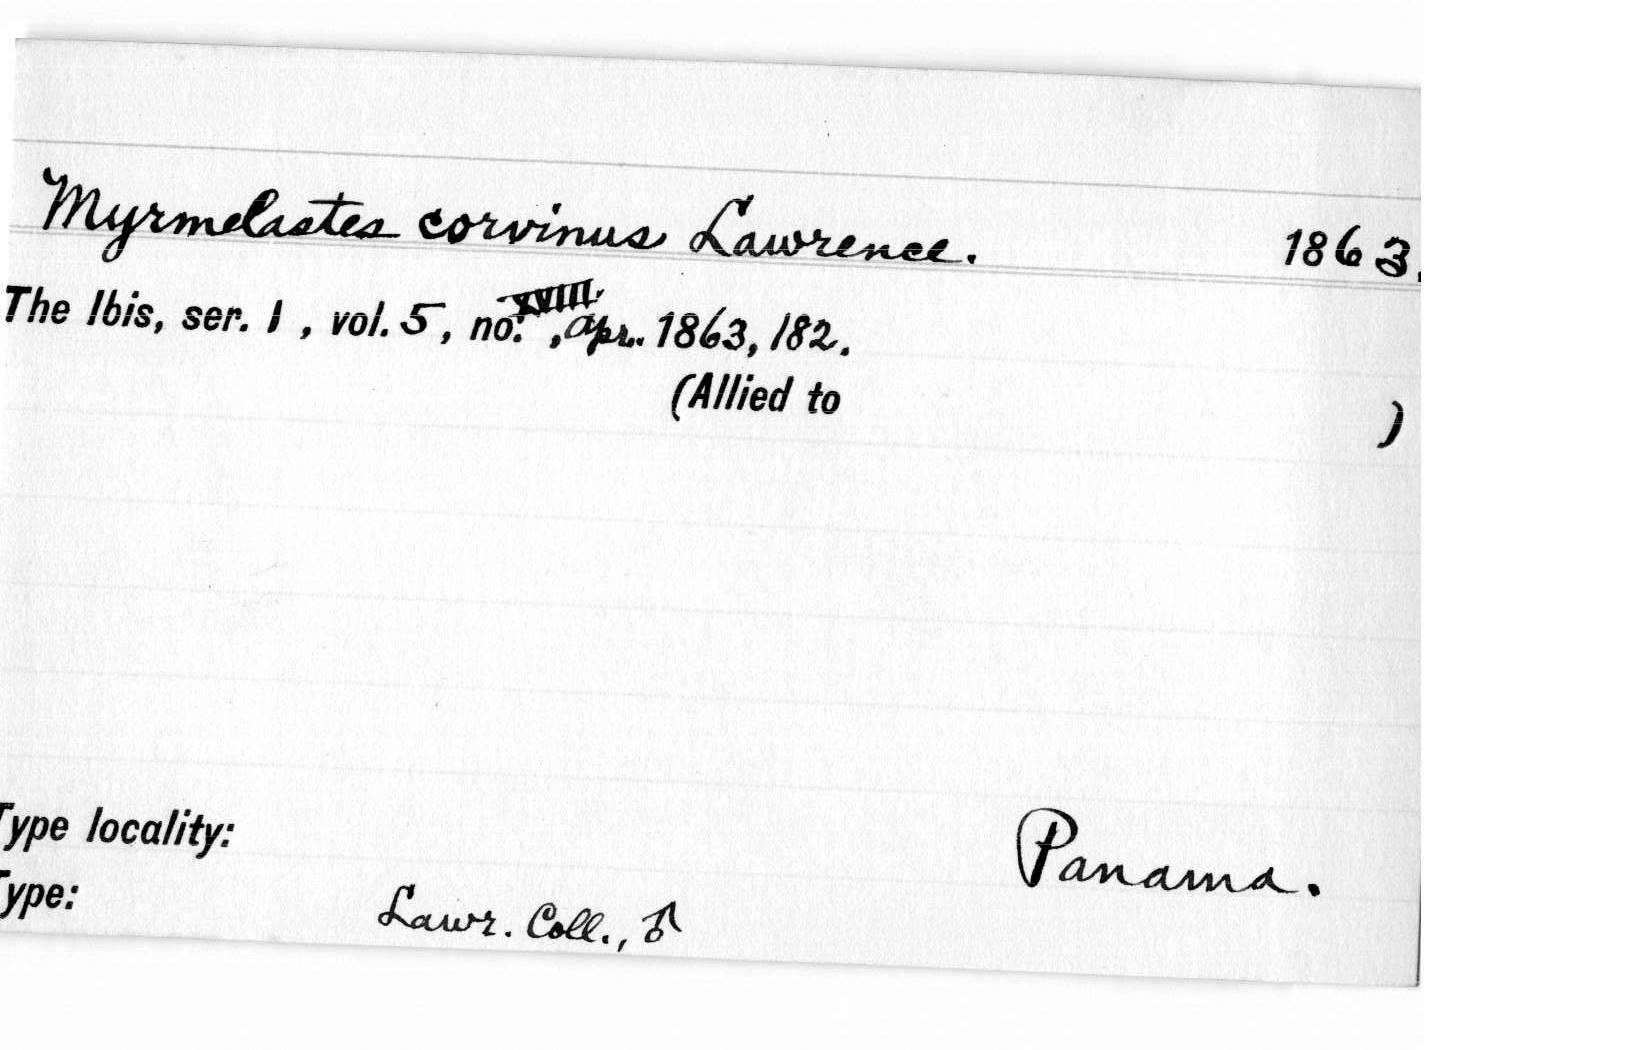 Myrmelastes corvinus Lawrence. 1863.
The Ibis, ser. 1, vol. 5, no. XVIII, Apr. 1863, 182.
(Allied to )
Type locality: Panama.
Type: Lawr. Coll., ♂